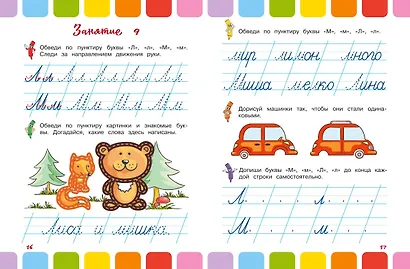 Занятие 9
Обведи по пунктиру буквы «Л», «л», «М», «м».
Следи за направлением движения руки.
Лл Л Л Л Л Л
Мм М м М м
Обведи по пунктиру картинки и знакомые бук-
вы. Догадайся, какие слова здесь написаны.
Лиса и мишка.
16
Обведи по пунктиру буквы «М», «м», «Л», «л».
мир лимон много
Миша мелко Лина
Дорисуй машинки так, чтобы они стали одина-
ковыми.
Допиши буквы «М», «м», «Л», «л» до конца каж-
дой строки самостоятельно.
Л л
М м
17